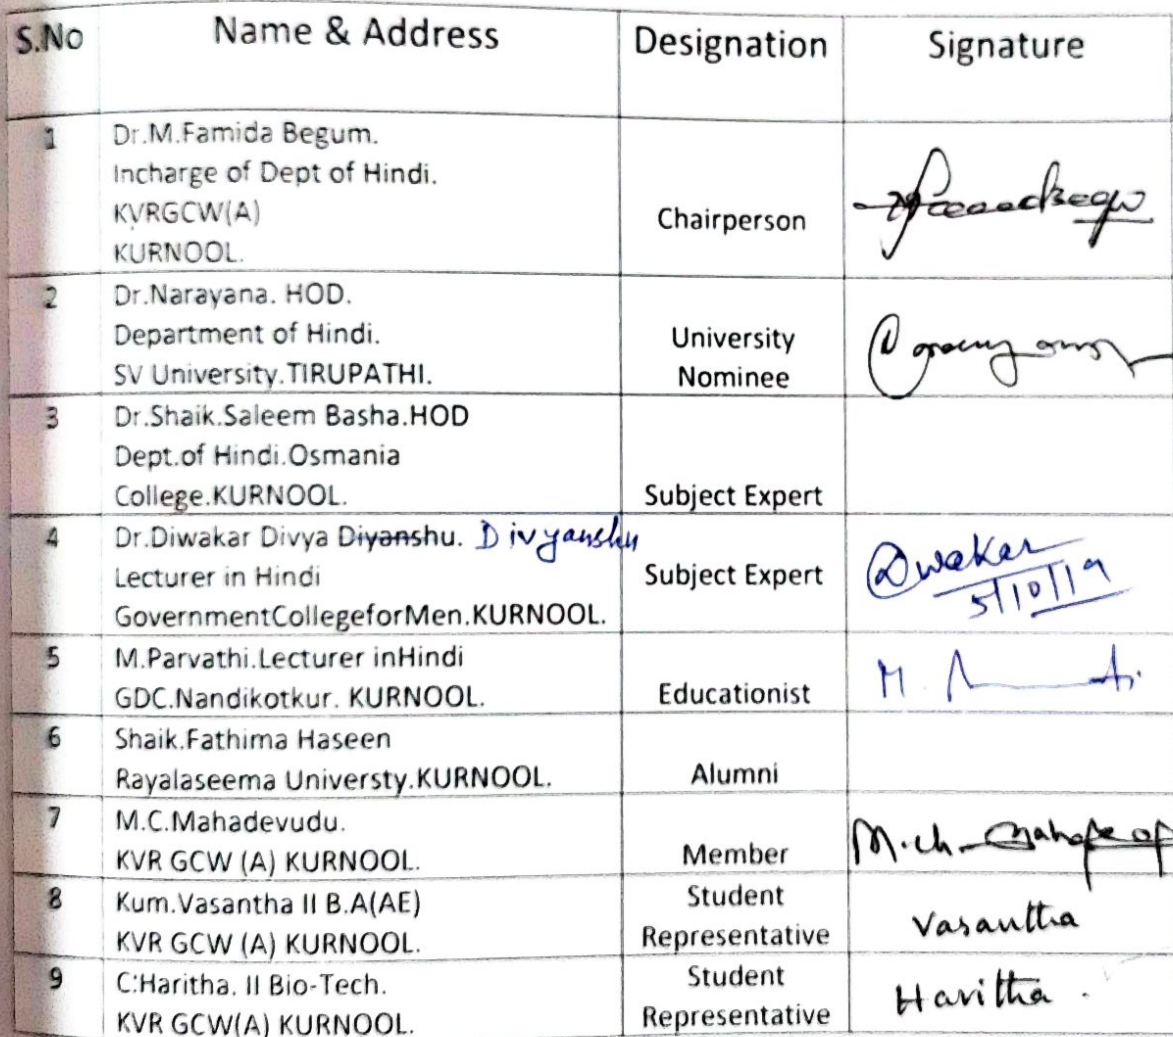 S.No Name & Address Designation Signature
1 Dr.M.Famida Begum.
Incharge of Dept of Hindi.
KVRGCW(A) Chairperson
KURNOOL.
2 Dr.Narayana. HOD.
Department of Hindi. University
SV University.TIRUPATHI. Nominee
3 Dr.Shaik.Saleem Basha.HOD
Dept.of Hindi.Osmania
College.KURNOOL. Subject Expert
4 Dr.Diwakar Divya Diyanshu. Divyanshu
Lecturer in Hindi Subject Expert Diwakar
5/10/19
GovernmentCollegeforMen.KURNOOL.
5 M.Parvathi.Lecturer inHindi
GDC.Nandikotkur. KURNOOL. Educationist M.
6 Shaik.Fathima Haseen
Rayalaseema Universty.KURNOOL. Alumni
7 M.C.Mahadevudu.
KVR GCW (A) KURNOOL. Member M.ch.
8 Kum.Vasantha II B.A(AE) Student
KVR GCW (A) KURNOOL. Representative Vasantha
9 C:Haritha. II Bio-Tech. Student
KVR GCW(A) KURNOOL. Representative Haritha.